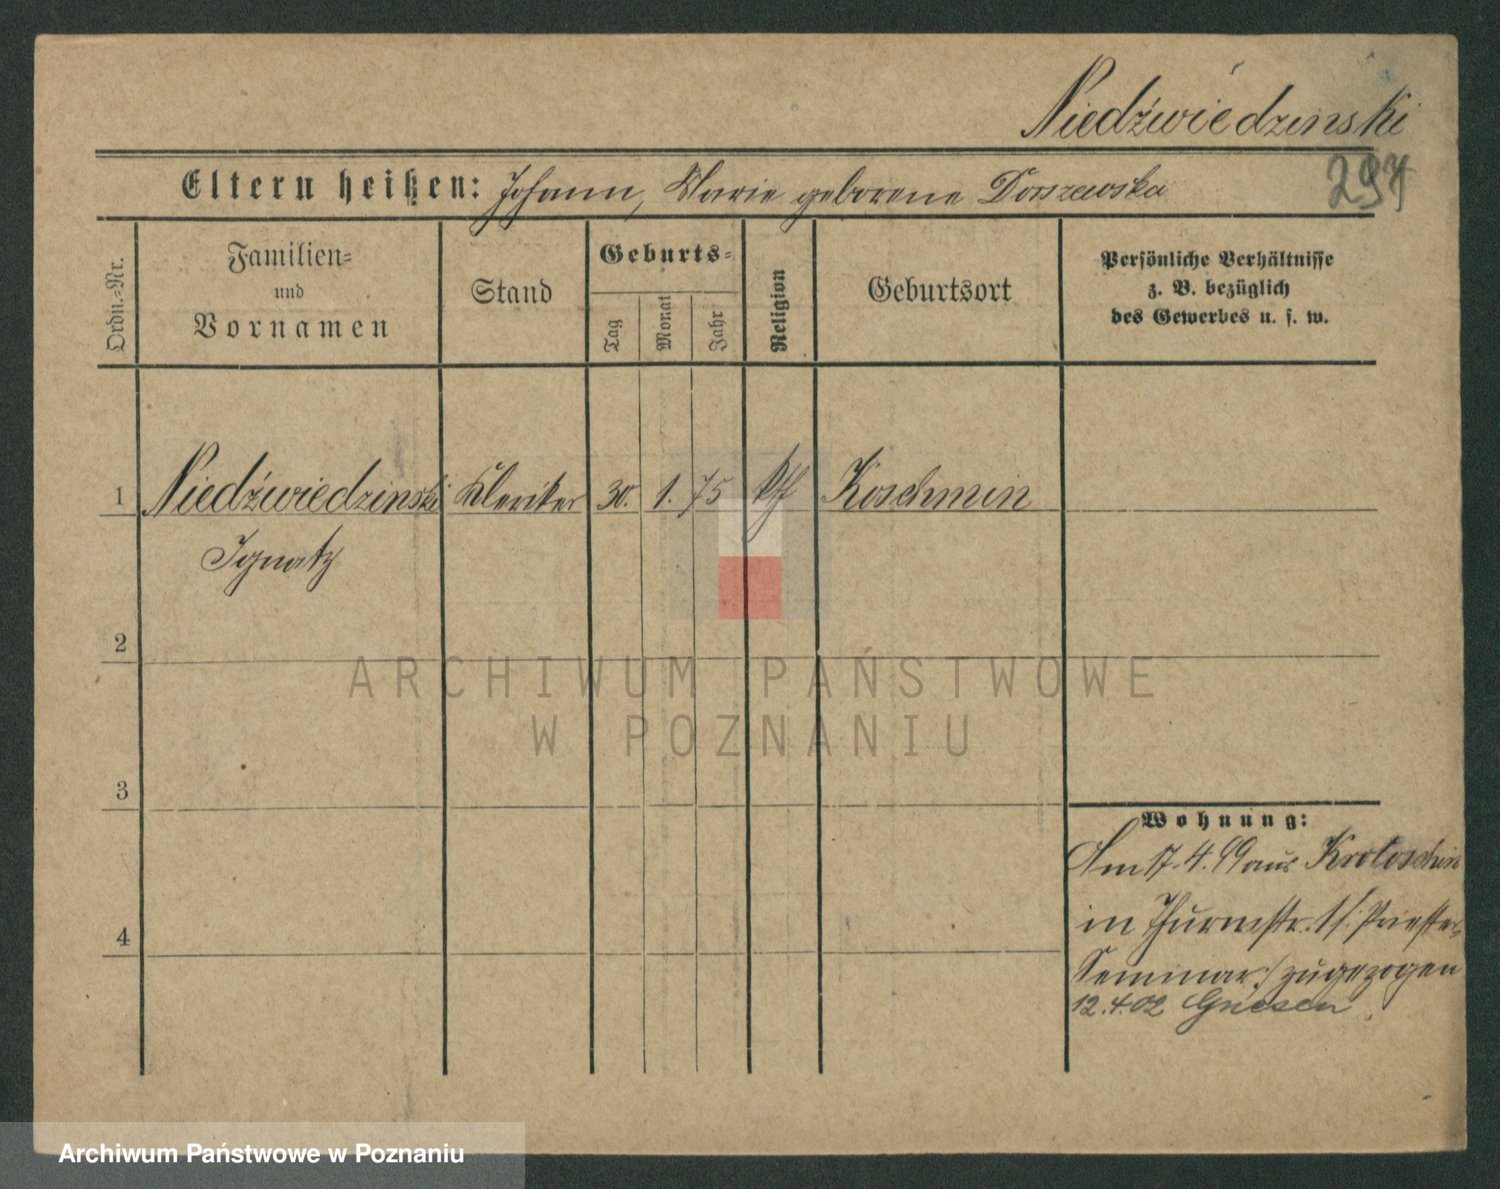 Niedźwiedzinski
Eltern heißen: Johann, Marie geborene Doszewska
297
Ordn.=Nr.
Familien=
und
Vornamen
Stand
Geburts=
Tag
Monat
Jahr
Religion
Geburtsort
Persönliche Verhältnisse
z. B. bezüglich
des Gewerbes u. s. w.
1 Niedźwiedzinski Kleriker 30. 1. 75 kth Koschmin
Ignatz
2
ARCHIWUM PAŃSTWOWE
W POZNANIU
3
Wohnung:
Am 17.4.99 aus Krotoschin
in Thurmstr. 1 /: Priester-
4
Seminar :/ zugezogen
12.4.02 Gnesen
Archiwum Państwowe w Poznaniu